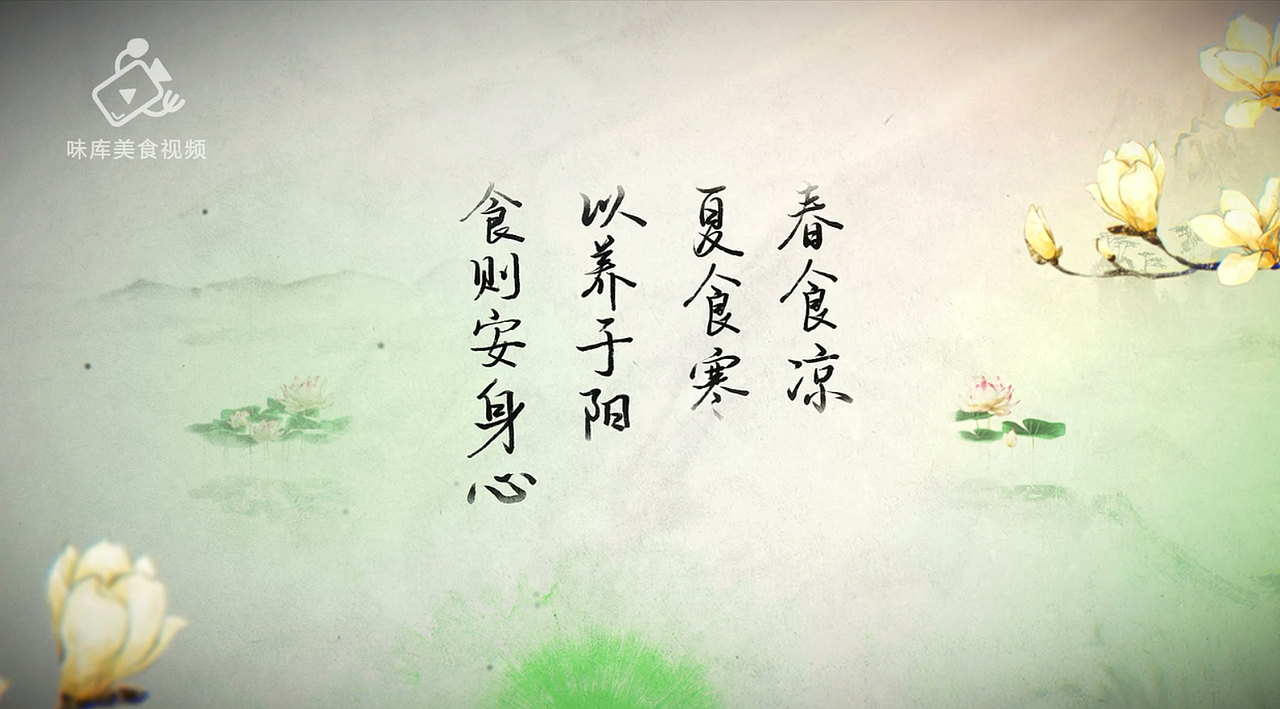 味库美食视频
春食凉
夏食寒
以养于阳
食则安身心